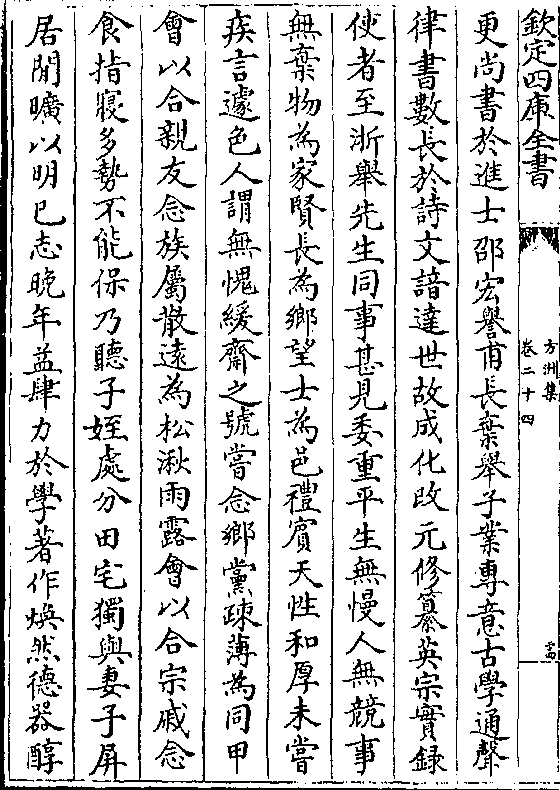 欽定四庫全書
方洲集
卷二十四
更尚書於進士邵宏譽甫長棄舉子業專意古學通聲
律書數長於詩文諳達世故成化改元修纂英宗實録
使者至浙舉先生同事甚見委重平生無慢人無競事
無棄物為家賢長為鄉望士為邑禮賓天性和厚未嘗
疾言遽色人謂無愧緩齋之號嘗念鄉黨疎薄為同甲
會以合親友念族屬散遠為松湫雨露會以合宗戚念
食指寝多勢不能保乃聽子姪處分田宅獨與妻子屏
居閒曠以明已志晚年益肆力於學著作煥然德器醇